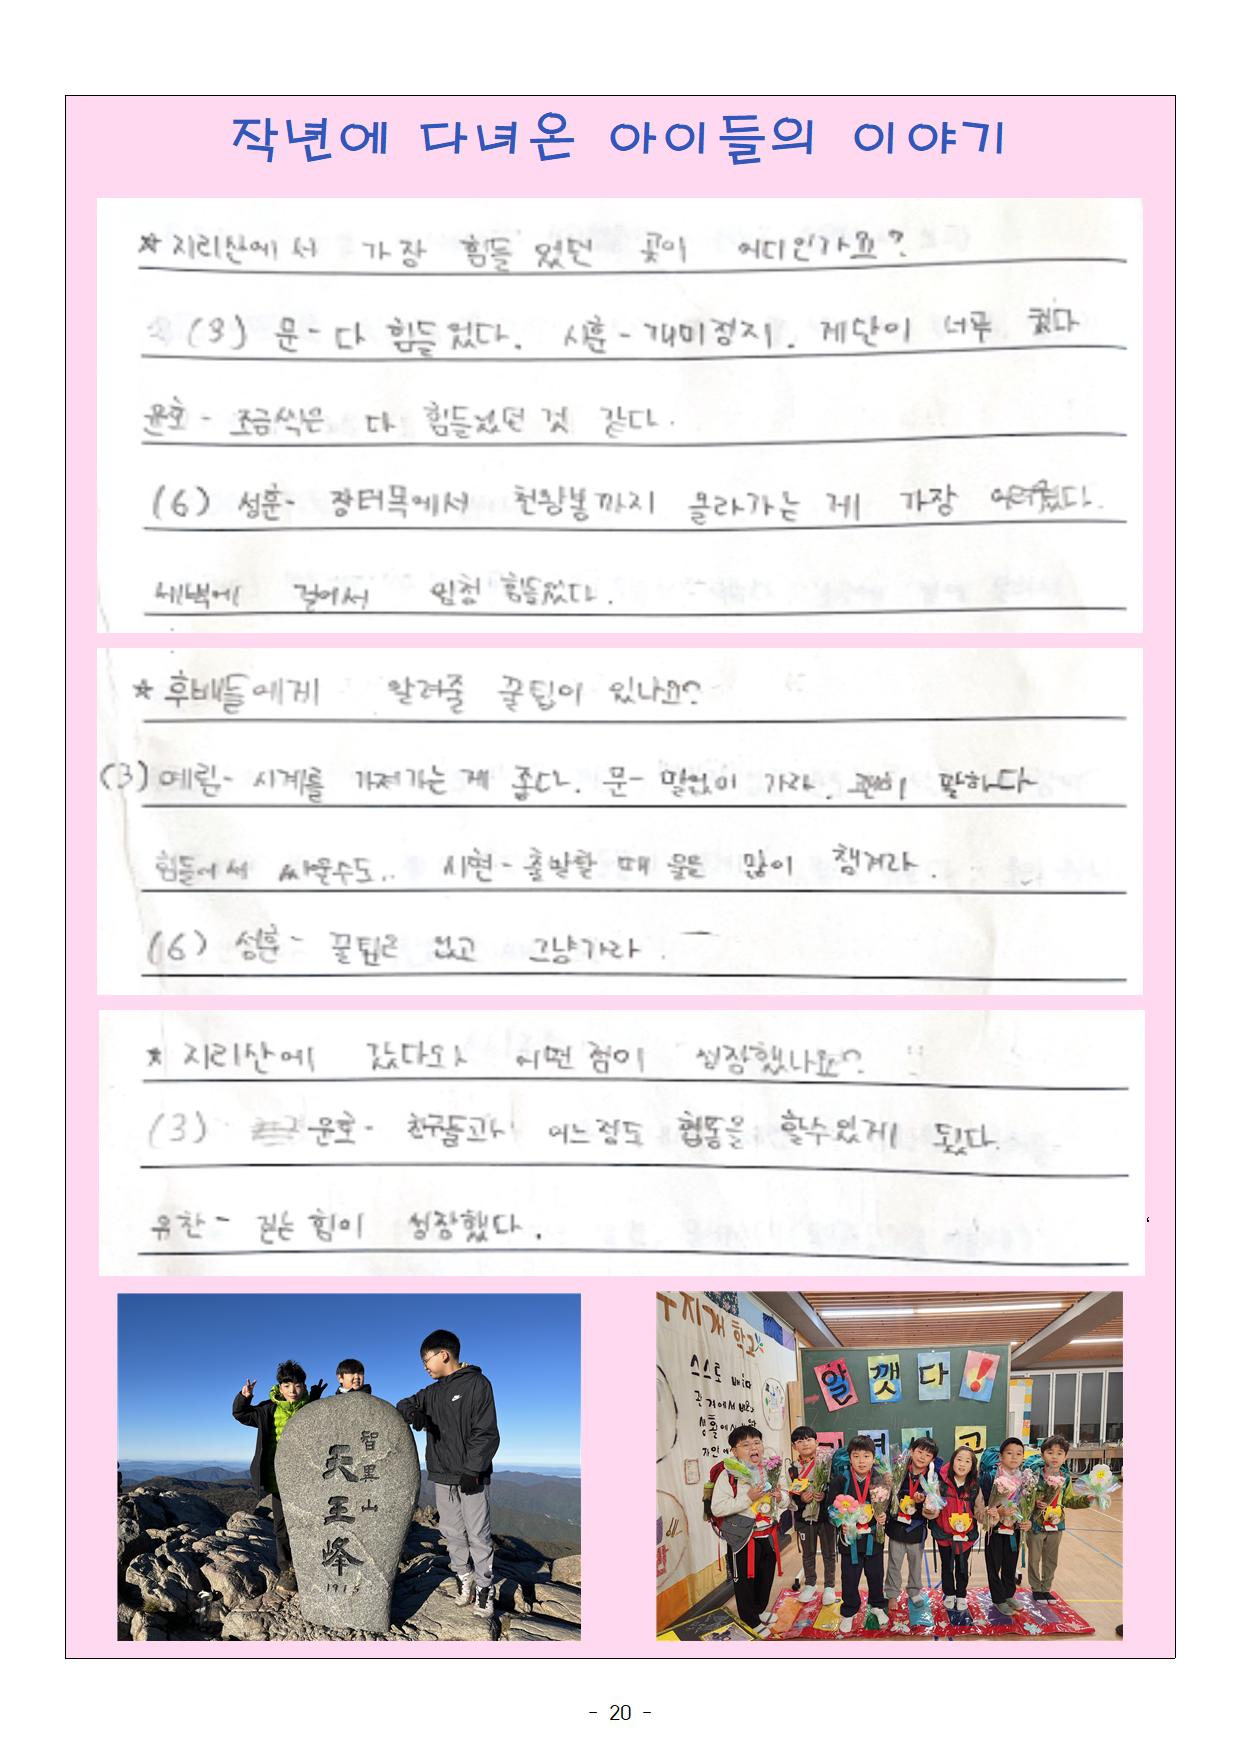 작년에 다녀온 아이들의 이야기
* 지리산에서 가장 힘들었던 곳이 어디인가요?
(3) 문- 다 힘들었다. 시훈- 개미정지. 계단이 너무 컸다
윤호- 조금씩은 다 힘들었던 것 같다.
(6) 성훈- 장터목에서 천왕봉까지 올라가는 게 가장 어려웠다.
새벽에 걸어서 엄청 힘들었다.
* 후배들에게 알려줄 꿀팁이 있나요?
(3) 예림- 시계를 가져가는 게 좋다. 문- 말없이 가라. 괜히 말하다
힘들어서 싸울수도.. 시현- 출발할 때 물을 많이 챙겨라.
(6) 성훈- 꿀팁은 없고 그냥가라.
* 지리산에 갔다와 어떤 점이 성장했나요?
(3) 윤호- 친구들과 어느정도 협동을 할수있게 됐다.
유찬- 걷는 힘이 성장했다.
智異山
天王峰
1915
무지개 학교
스스로 배
관계에서 배
해냈다!
- 20 -